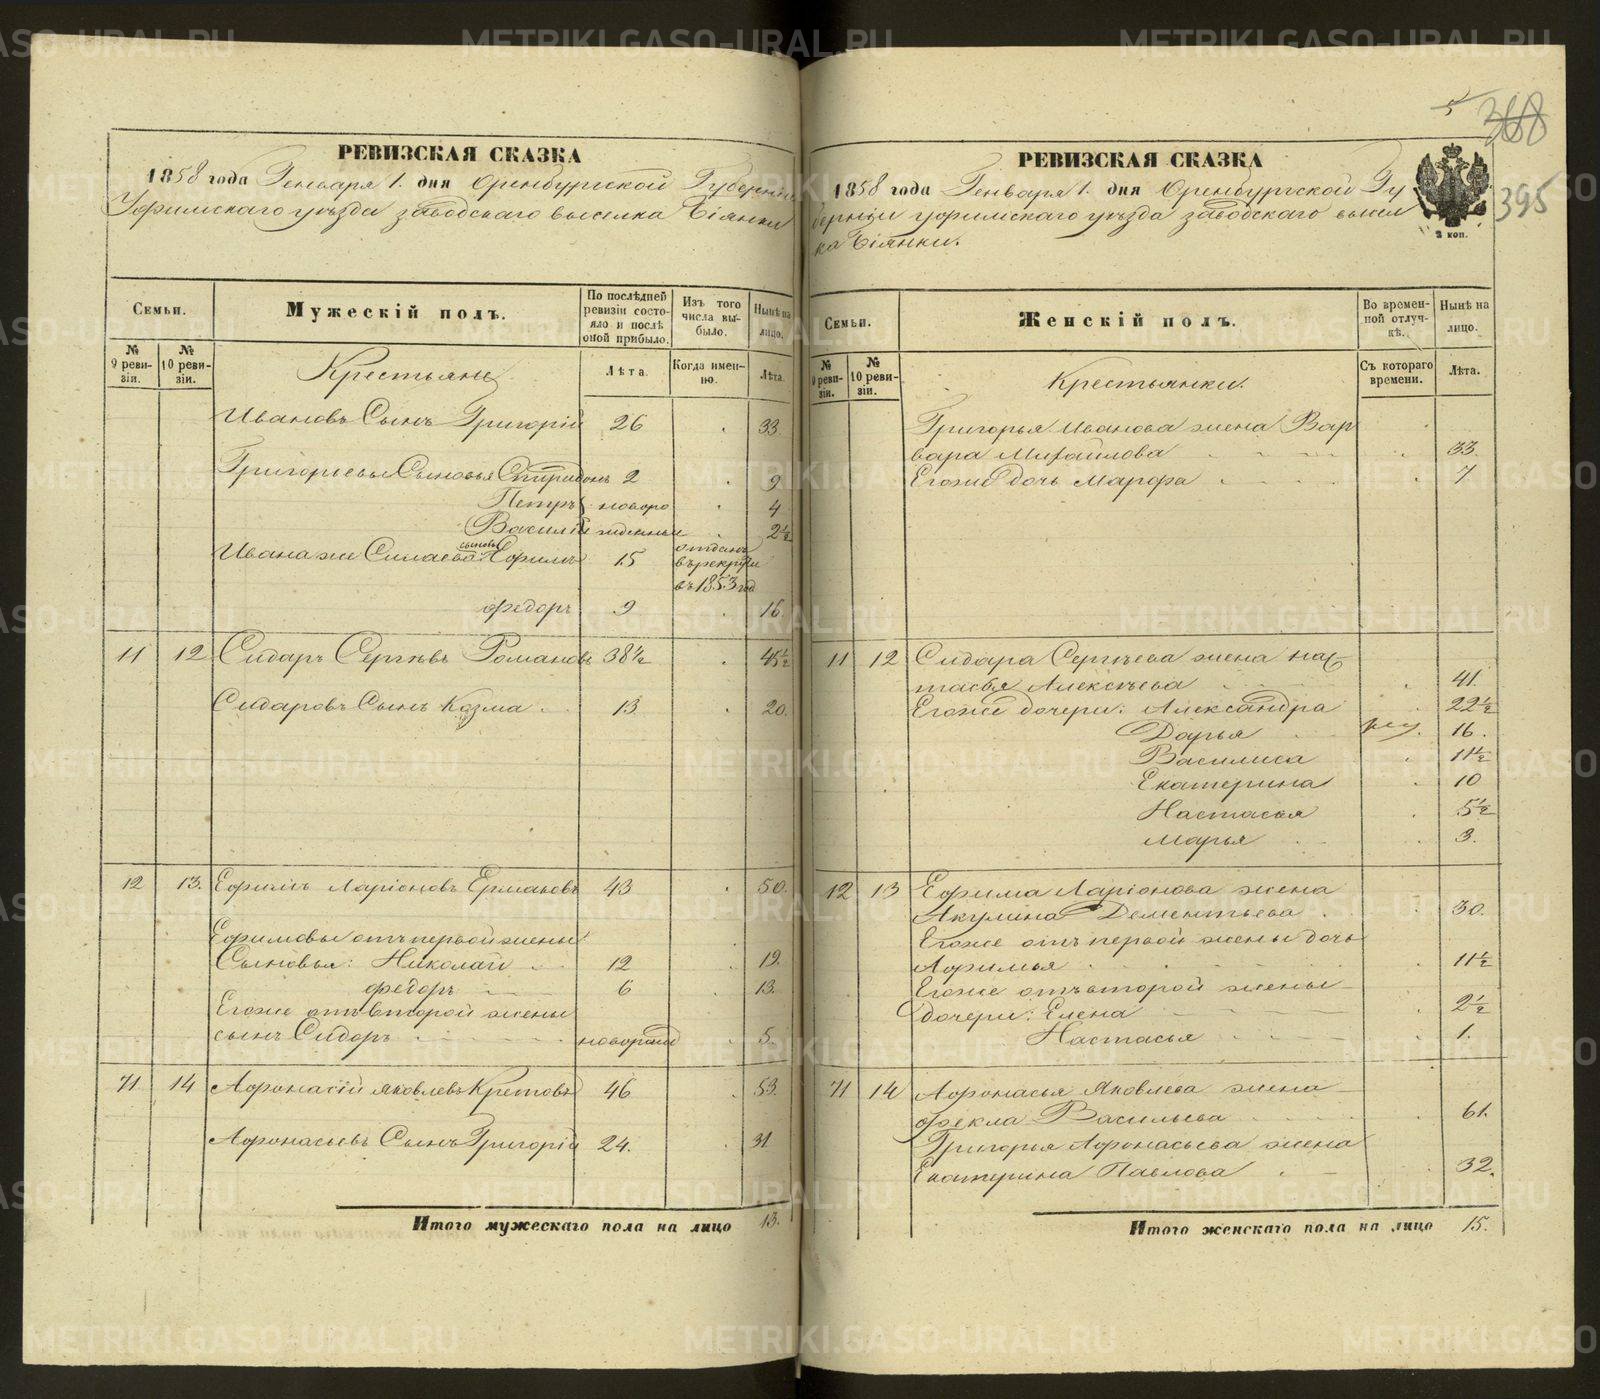 РЕВИЗСКАЯ СКАЗКА
1858 года Генваря 1. дня Оренбургской Губерніи
Уфимскаго уѣзда заводскаго выселка Біянки
Семьи.
Мужескій полъ.
По послѣдней ревизіи состояло и послѣ оной прибыло.
Изъ того числа выбыло.
Нынѣ на лицо.
№ 9 ревизіи.
№ 10 ревизіи.
Крестьяне
Лѣта.
Когда именно.
Лѣта.
Ивановъ Сынъ Григорій 26 33
Григорьевы Сыновья Спиридонъ 2 9
Петръ новоро 4
Василій жденные 2½
Ивана же Силаева сыновья Ефимъ 15 отданъ в рекруты въ 1853 год
Федоръ 9 16
11 12 Сидаръ Сергѣевъ Романовъ 38½ 45½
Сидаровъ Сынъ Козма 13 20
12 13. Ефимъ Ларіоновъ Ермаковъ 43 50.
Ефимовы отъ первой жены
Сыновья: Николай 12 19
Федоръ 6 13
Егоже отъ второй жены
сынъ Сидоръ новорожд 5
71 14 Афонасій Яковлевъ Кретовъ 46 53.
Афонасьевъ Сынъ Григорій 24. 31
Итого мужескаго пола на лицо 13.
388
395
РЕВИЗСКАЯ СКАЗКА
1858 года Генваря 1. дня Оренбургской Гу
берніи Уфимскаго уѣзда заводскаго высел
ка Біянки.
2 коп.
Семьи.
Женскій полъ.
Во временной отлучкѣ.
Нынѣ на лицо.
№ 9 ревизіи.
№ 10 ревизіи.
Крестьянки.
Съ котораго времени.
Лѣта.
Григорья Иванова жена Вар
вара Михайлова 33.
Егоже дочь Марфа 7
11 12 Сидара Сергѣева жена нас
тасья Алексѣева 41.
Егоже дочери: Александра 22½
Дарья 16.
Василиса 11½
Екатерина 10
Настасья 5½
Марья 3.
12 13 Ефима Ларіонова жена
Акулина Дементьева 30.
Егоже отъ первой жены дочь
Афимья 11½
Егоже отъ второй жены
дочери: Елена 2½
Настасья 1.
71 14 Афонасья Яковлева жена
Фекла Васильева 61.
Григорья Афонасьева жена
Екатерина Павлова 32.
Итого женскаго пола на лицо 15.
METRIKI.GASO-URAL.RU